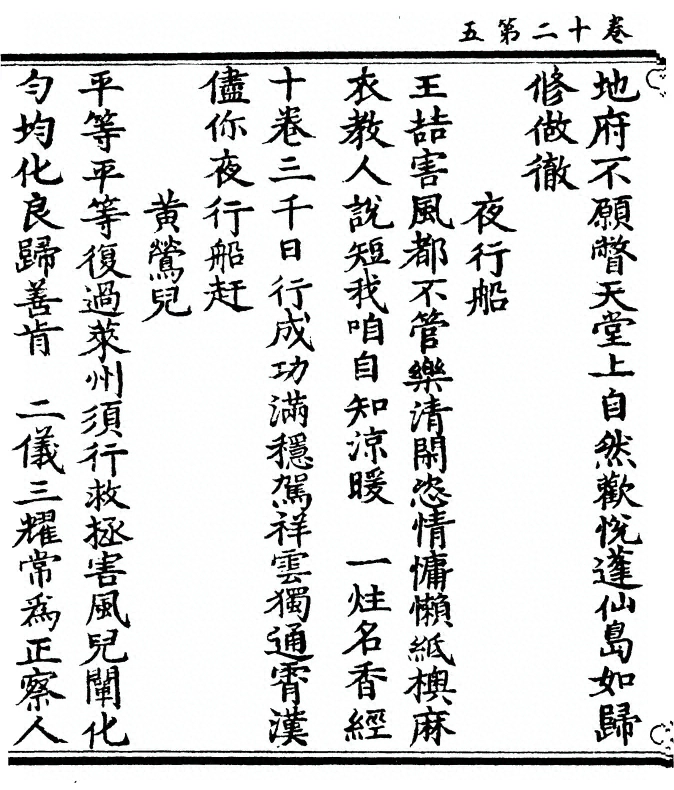 卷十二第五
地府不願瞥天堂上自然歡悅蓬仙島如歸
修做徹
夜行船
王喆害風都不管樂清閑恣情慵懶紙襖麻
衣教人說短我咱自知涼暖　一炷名香經
十卷三千日行成功滿穩駕祥雲獨通霄漢
儘你夜行船赶
黃鶯兒
平等平等復過萊州須行救拯害風兒闡化
勻均化良歸善肯　二儀三耀常為正察人